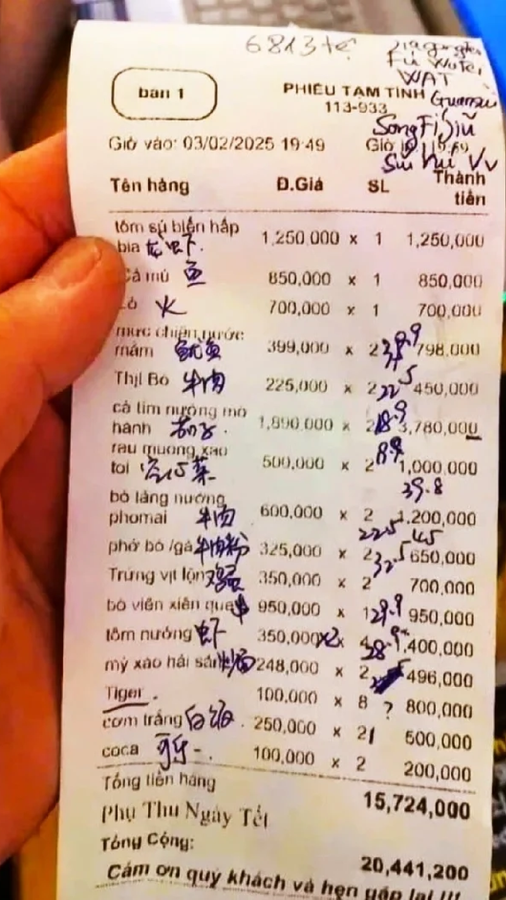 6813
WAT
bàn 1
PHIẾU TẠM TÍNH
113-933
SongFiJiu
Giờ vào: 03/02/2025 19:49 Giờ
Tên hàng Đ.Giá SL Thành tiền
tôm sú biển hấp
bia 龙虾. 1,250,000 x 1 1,250,000
Cá mú 鱼 850,000 x 1 850,000
火 700,000 x 1 700,000
mực chiên nước
mắm 鱿鱼 399,000 x 2 798,000
Thịt Bò 牛肉 225,000 x 2 450,000
cà tím nướng mỡ
hành 茄子 1,890,000 x 2 3,780,000
rau muống xào
tỏi 空心菜 500,000 x 2 8.9 1,000,000
39.8
bò lảng nướng
phomai 牛肉 600,000 x 2 1,200,000
phở bò /gà 牛肉粉 325,000 x 2 650,000
Trứng vịt lộn 鸡蛋 350,000 x 2 700,000
bò viên xiên que 串 950,000 x 1 29.9 950,000
tôm nướng 虾 350,000 x2 4 1,400,000
mỳ xào hải sản 248,000 x 2 496,000
Tiger 100,000 x 8 ? 800,000
cơm trắng 白饭 250,000 x 2 500,000
coca 可乐 100,000 x 2 200,000
Tổng tiền hàng
15,724,000
Phụ Thu Ngày Tết
Tổng Cộng:
20,441,200
Cảm ơn quý khách và hẹn gặp lại !!!